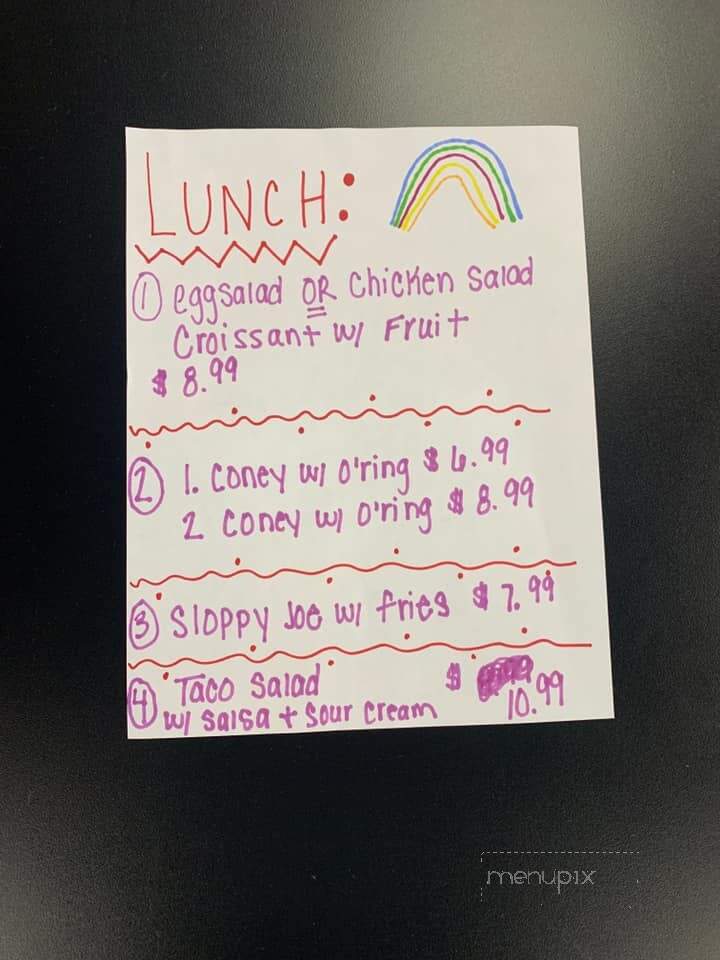 LUNCH:
1 eggsalad OR Chicken Salad
Croissant w/ Fruit
$ 8.99
2 1. Coney w/ O'ring $ 6.99
2 Coney w/ O'ring $ 8.99
3 Sloppy Joe w/ fries $ 7.99
4 Taco Salad $
w/ Salsa + Sour Cream 10.99
menupix